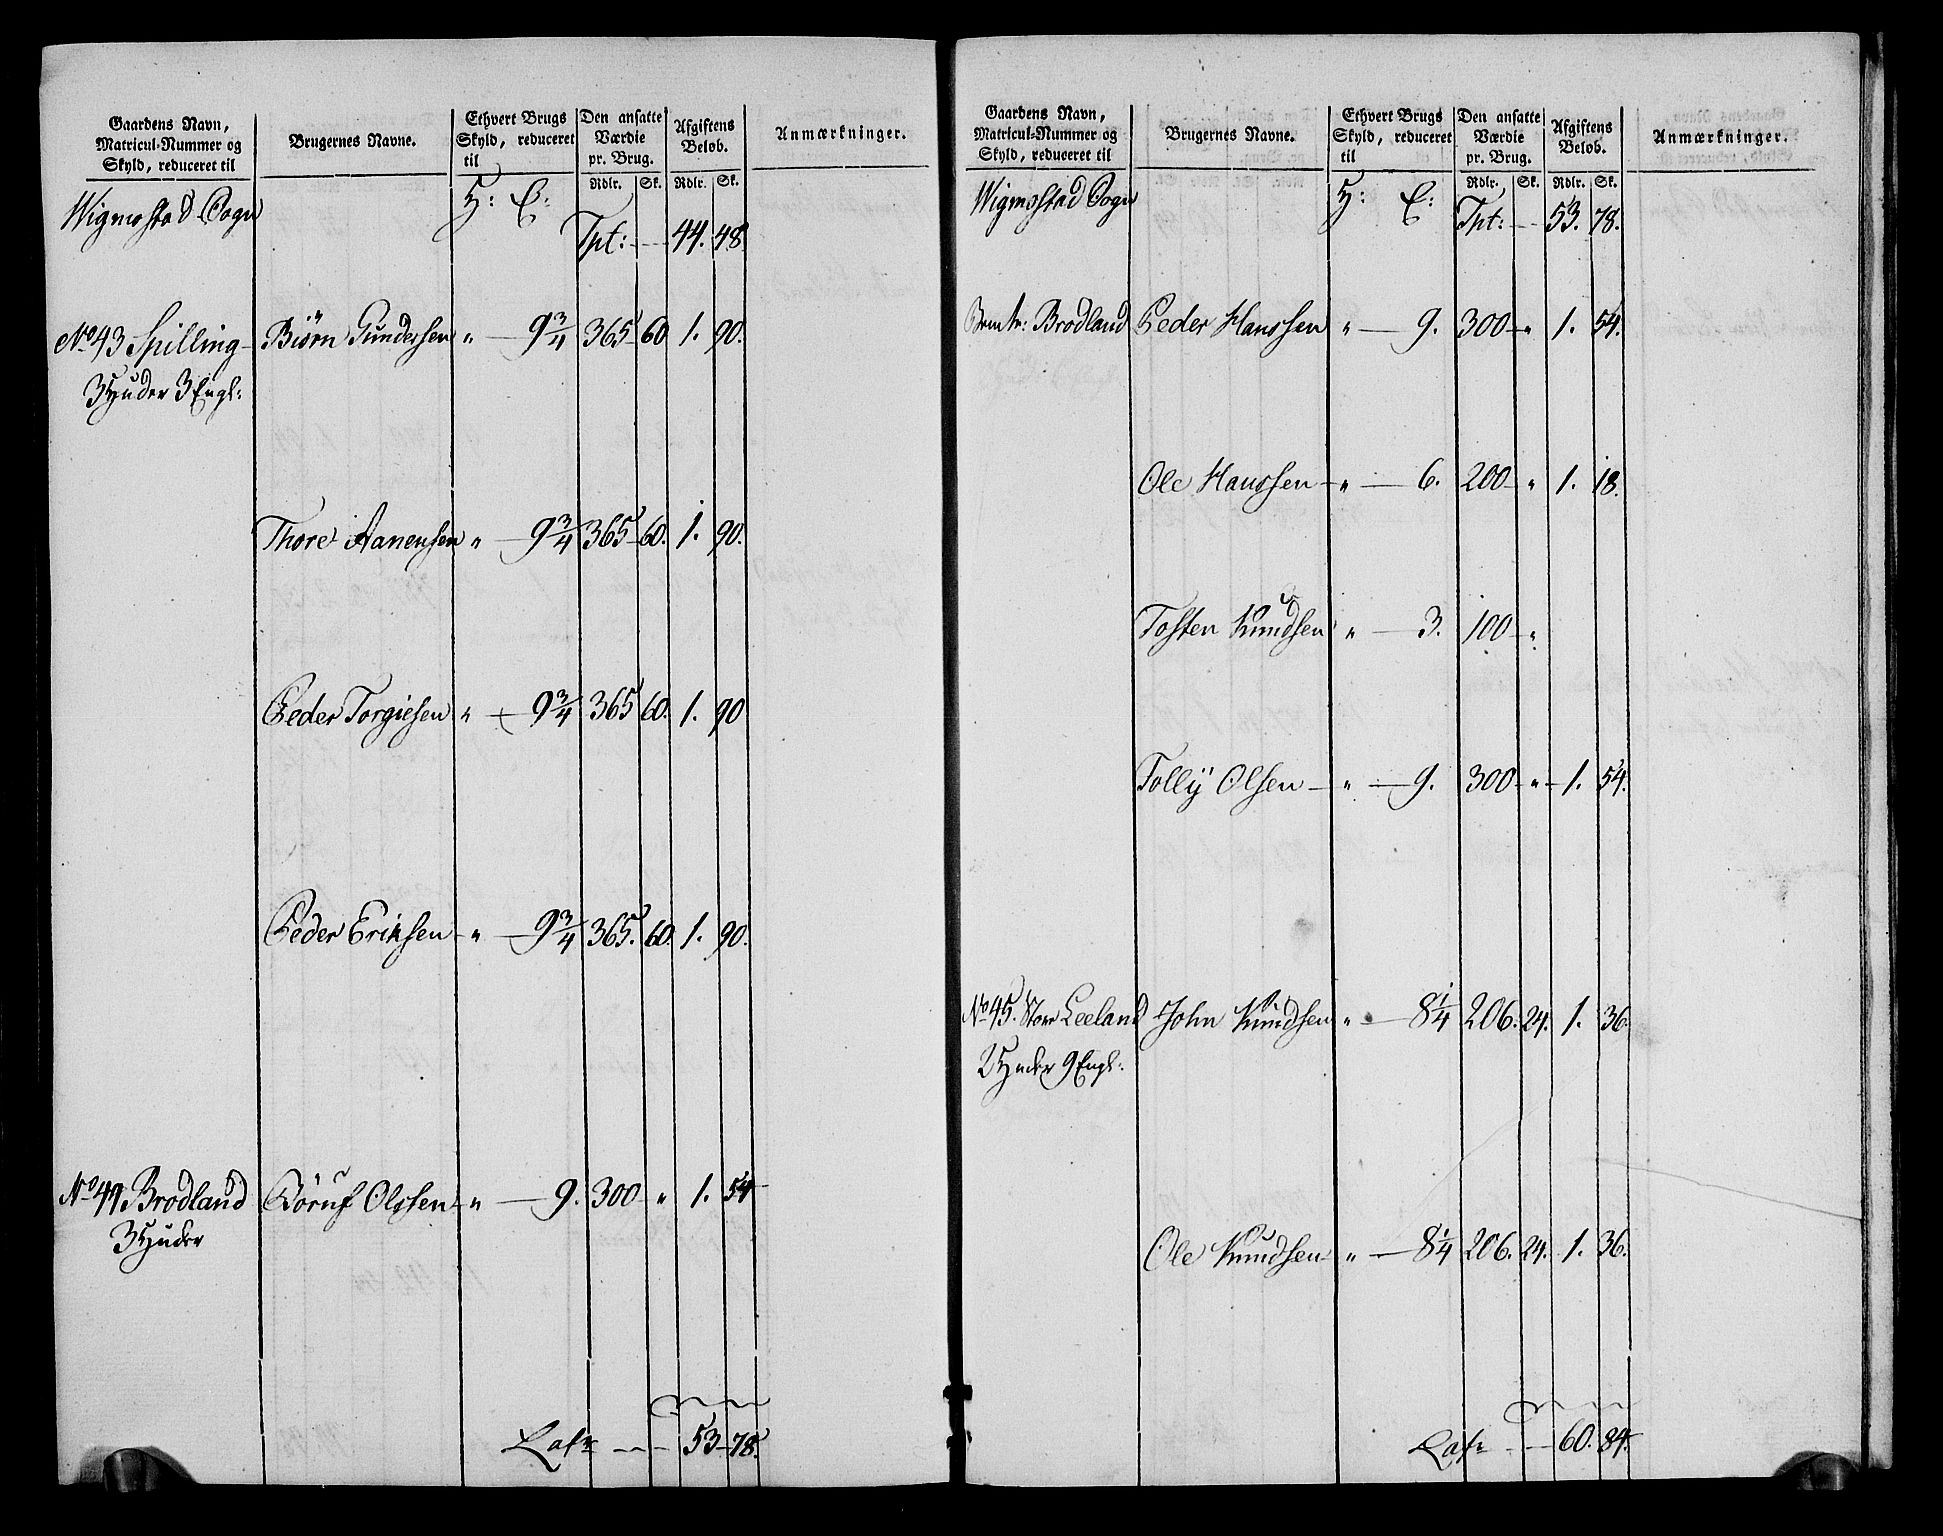 Gaardens Navn, Matricul-Nummer og Skyld, reduceret til | Brugernes Navne. | Ethvert Brugs Skyld, reduceret til | Den ansatte Værdie pr. Brug. | Afgiftens Beløb. | Anmærkninger.
Rdlr. | Sk. | Rdlr. | Sk.
Wigmostad Sogn H: E: Tpt: 44. 48
No 43 Spilling Biørn Gundersen " 9 3/4 365 60 1. 90.
3 Huder 3 Engl:
Thore Aanensen " 9 3/4 365 60. 1. 90.
Peder Torgiesen " 9 3/4 365 60. 1. 90
Peder Eriksen " 9 3/4 365. 60. 1. 90.
No 44 Brodland Børuf Olssen " 9. 300 " 1. 54
3 Huder
Latr 53 78.
Gaardens Navn, Matricul-Nummer og Skyld, reduceret til | Brugernes Navne. | Ethvert Brugs Skyld, reduceret til | Den ansatte Værdie pr. Brug. | Afgiftens Beløb. | Anmærkninger.
Rdlr. | Sk. | Rdlr. | Sk.
Wigmostad Sogn H: E: Tpt: 53. 78.
Brodland Peder Hanssen " 9. 300 " 1. 54.
Ole Hanssen " 6. 200 " 1. 18.
Tosten Knudsen " 3. 100 "
Tollÿ Olsen " 9. 300 " 1. 54.
No 45. Store Leeland John Knudsen " 8 1/4 206. 24. 1. 36
2 Huder 9 Engl:
Ole Knudsen " 8 1/4 206. 24. 1. 36.
Latr 60. 84.